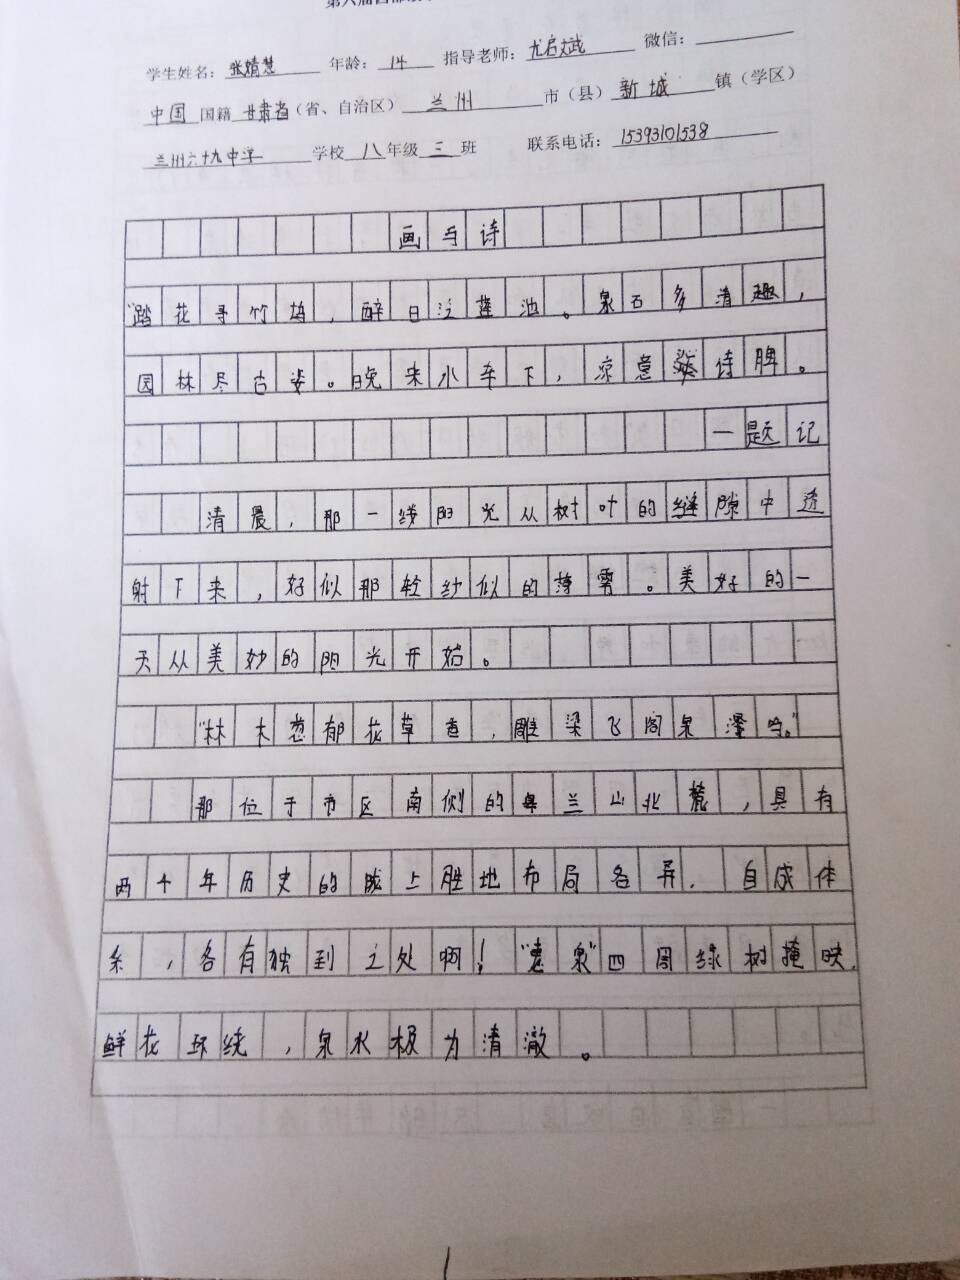 学生姓名：张婧慧 年龄：14 指导老师：尤启斌 微信：
中国 国籍 甘肃省（省、自治区） 兰州 市（县） 新城 镇（学区）
兰州六十九中学 学校 八 年级 三 班 联系电话：15393101538
画与诗
“踏花寻竹坞，醉日泛莲池。泉石多清趣，
园林尽古姿。晚来小车下，凉意袭诗脾。
—题记
清晨，那一缕阳光从树叶的缝隙中透
射下来，好似那轻纱似的薄雾。美好的一
天从美妙的阳光开始。
“林木葱郁花草香，雕梁飞阁泉瀑鸣。”
那位于市区南侧的皋兰山北麓，具有
两千年历史的陇上胜地布局各异，自成体
系，各有独到之处啊！“惠泉”四周绿树掩映，
鲜花环绕，泉水极为清澈。